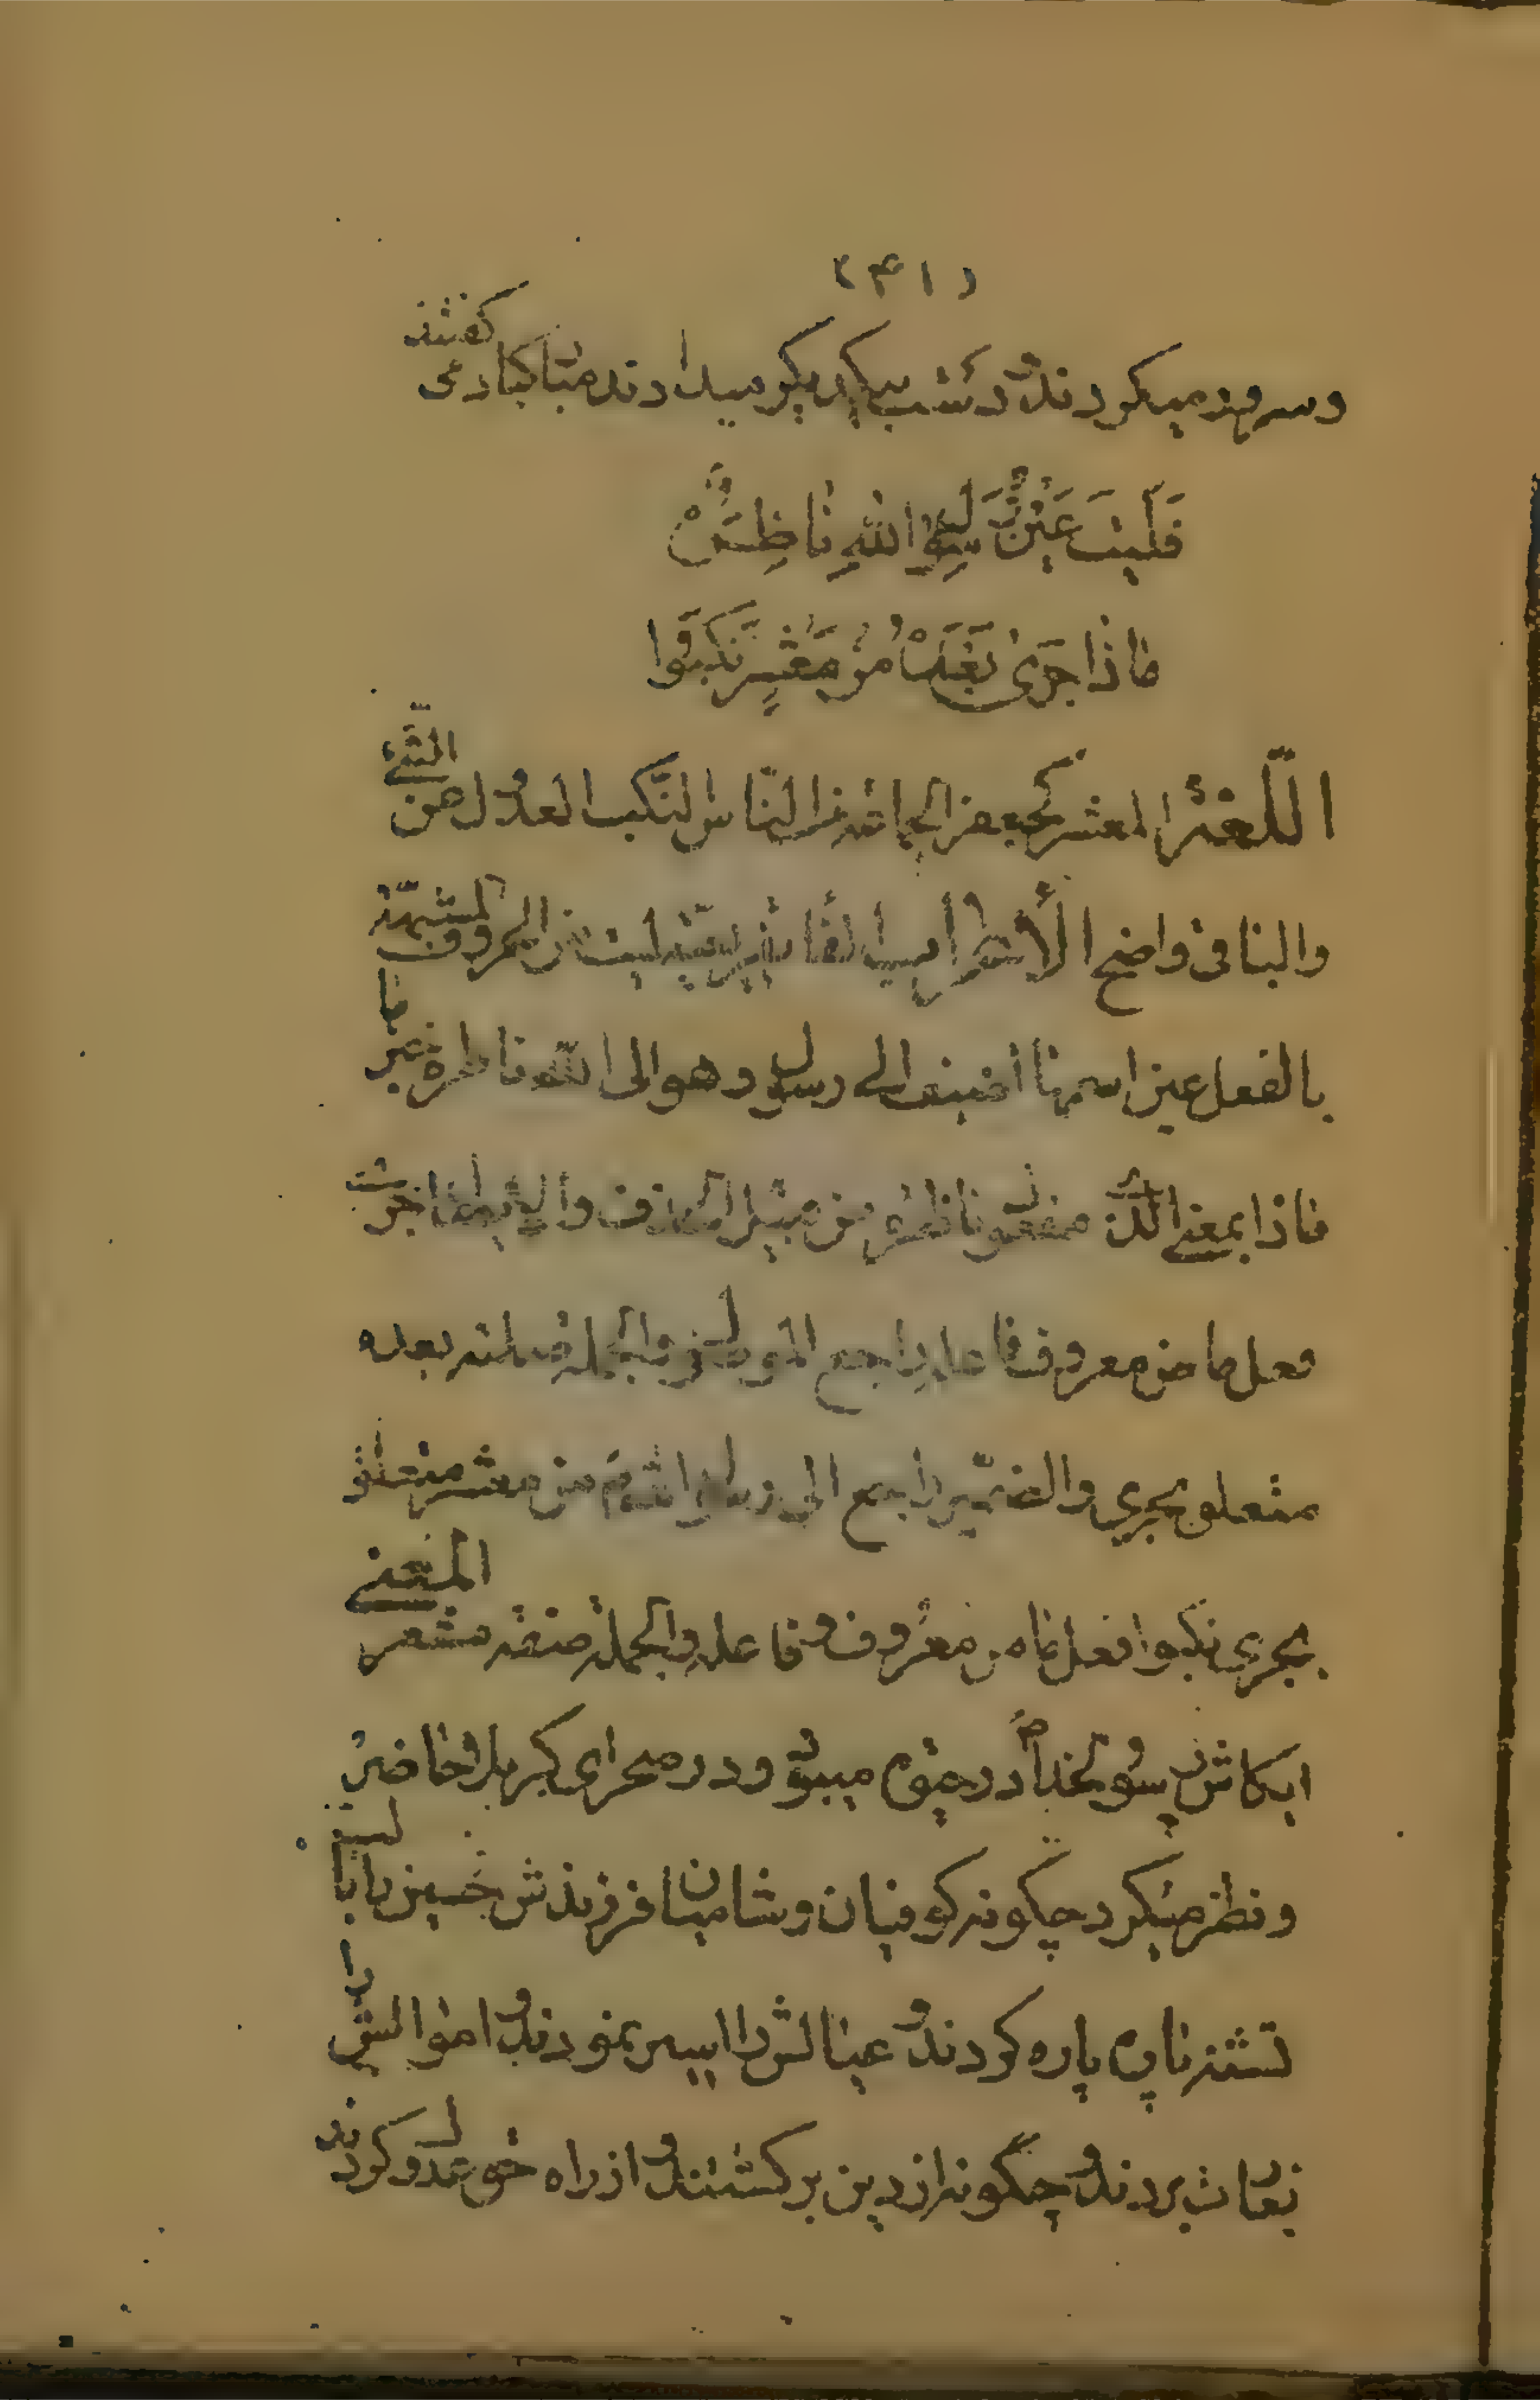 (۴۱)
وسرورد میکردند و دست بیکدیگر میدادند مبارکبادی گفتند
فَلَیتَ عَیْنَ رَسُولِ اللهِ نَاظِرَةٌ
مَاذَا جَرَیٰ بَعْدَهُ مِنْ مَعْشَرٍ نَکَبُوا
اللّغة المعشر کجعفر الجماعة من النّاس النّکب العدول عن الشّیٔ
والباقی واضح الأعراب الفا لیت من الحروف المشبهّة
بالفعل عین اسمها اضیف الی رسول وهو الی الله ناظرة خبرها
ماذا بمعنی الّذی مفعول ناظرة من قبیل الحذف والایصال جری
فعل ماض معروف فاعله راجع الی الموصول والجملة صلته بعده
متعلق بجری والضمّیر راجع الی رسول الله من معشر متعلق
بجری نکبوا فعل ماض معروف و فاعله والجملة صفة معشر المعنی
ایکاش رسول خدا ص در حیوة میبود و در صحرای کربلا حاضر
ونظر میکرد چگونه کوفیان و شامیان فرزندش حسین را با لب
تشنه پاره پاره کردند و عیالش را اسیر نمودند و اموالش را
بغارت بردند و چگونه از دین برگشتند و از راه حق عدول کردند